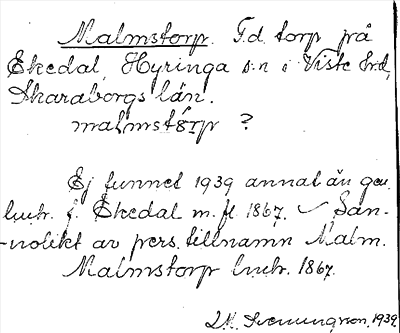 Malmstorp. F.d. torp på
Ekedal, Hyringa s:n i Viste hd,
Skaraborgs län.
malmstårp ?
Ej funnet 1939 annat än gen.
lmtr. f. Ekedal m. fl. 1867. San-
-nolikt av pers. tillnamn Malm.
Malmstorp lmtr. 1867.
1939